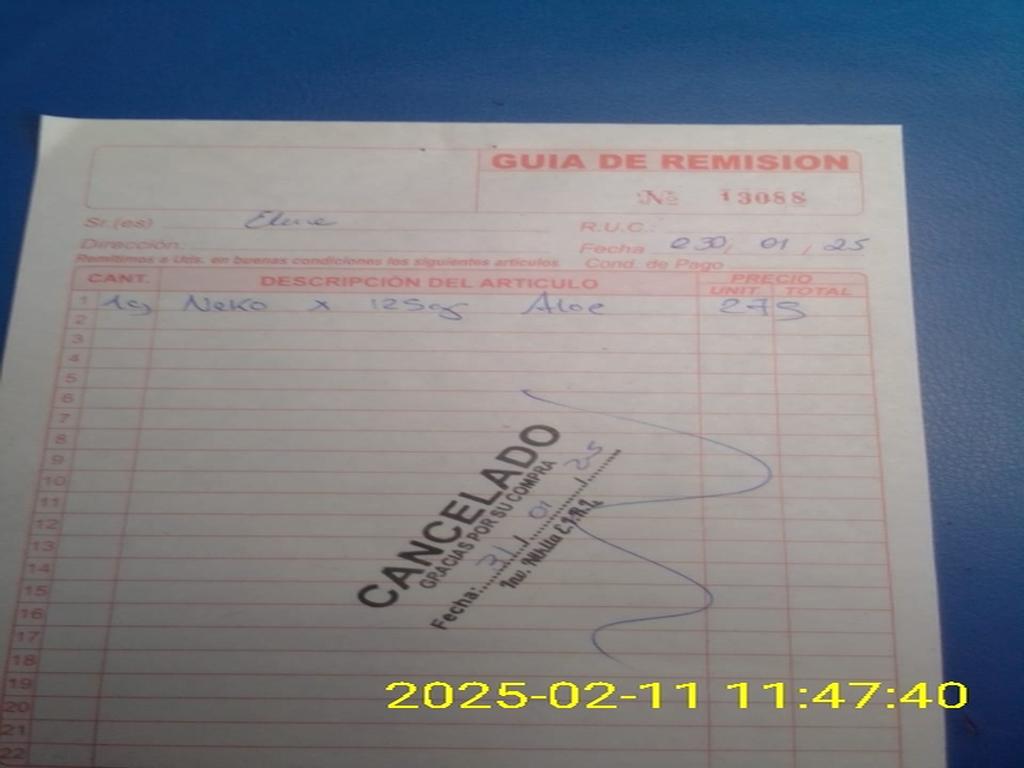 GUIA DE REMISION
Nº 13088
Sr.(es)
R.U.C.:
Dirección:
Fecha 30, 01, 25
Remitimos a Uds. en buenas condiciones los siguientes artículos
Cond. de Pago
CANT. DESCRIPCIÓN DEL ARTICULO PRECIO
UNIT. TOTAL
1 Neko x 125gr Aloe 275
2
3
4
5
6
7
8
9
10
11
12
13
14
15
16
17
18
19
20
21
22
CANCELADO
GRACIAS POR SU COMPRA
Fecha: 31 / 01 / 25
2025-02-11 11:47:40